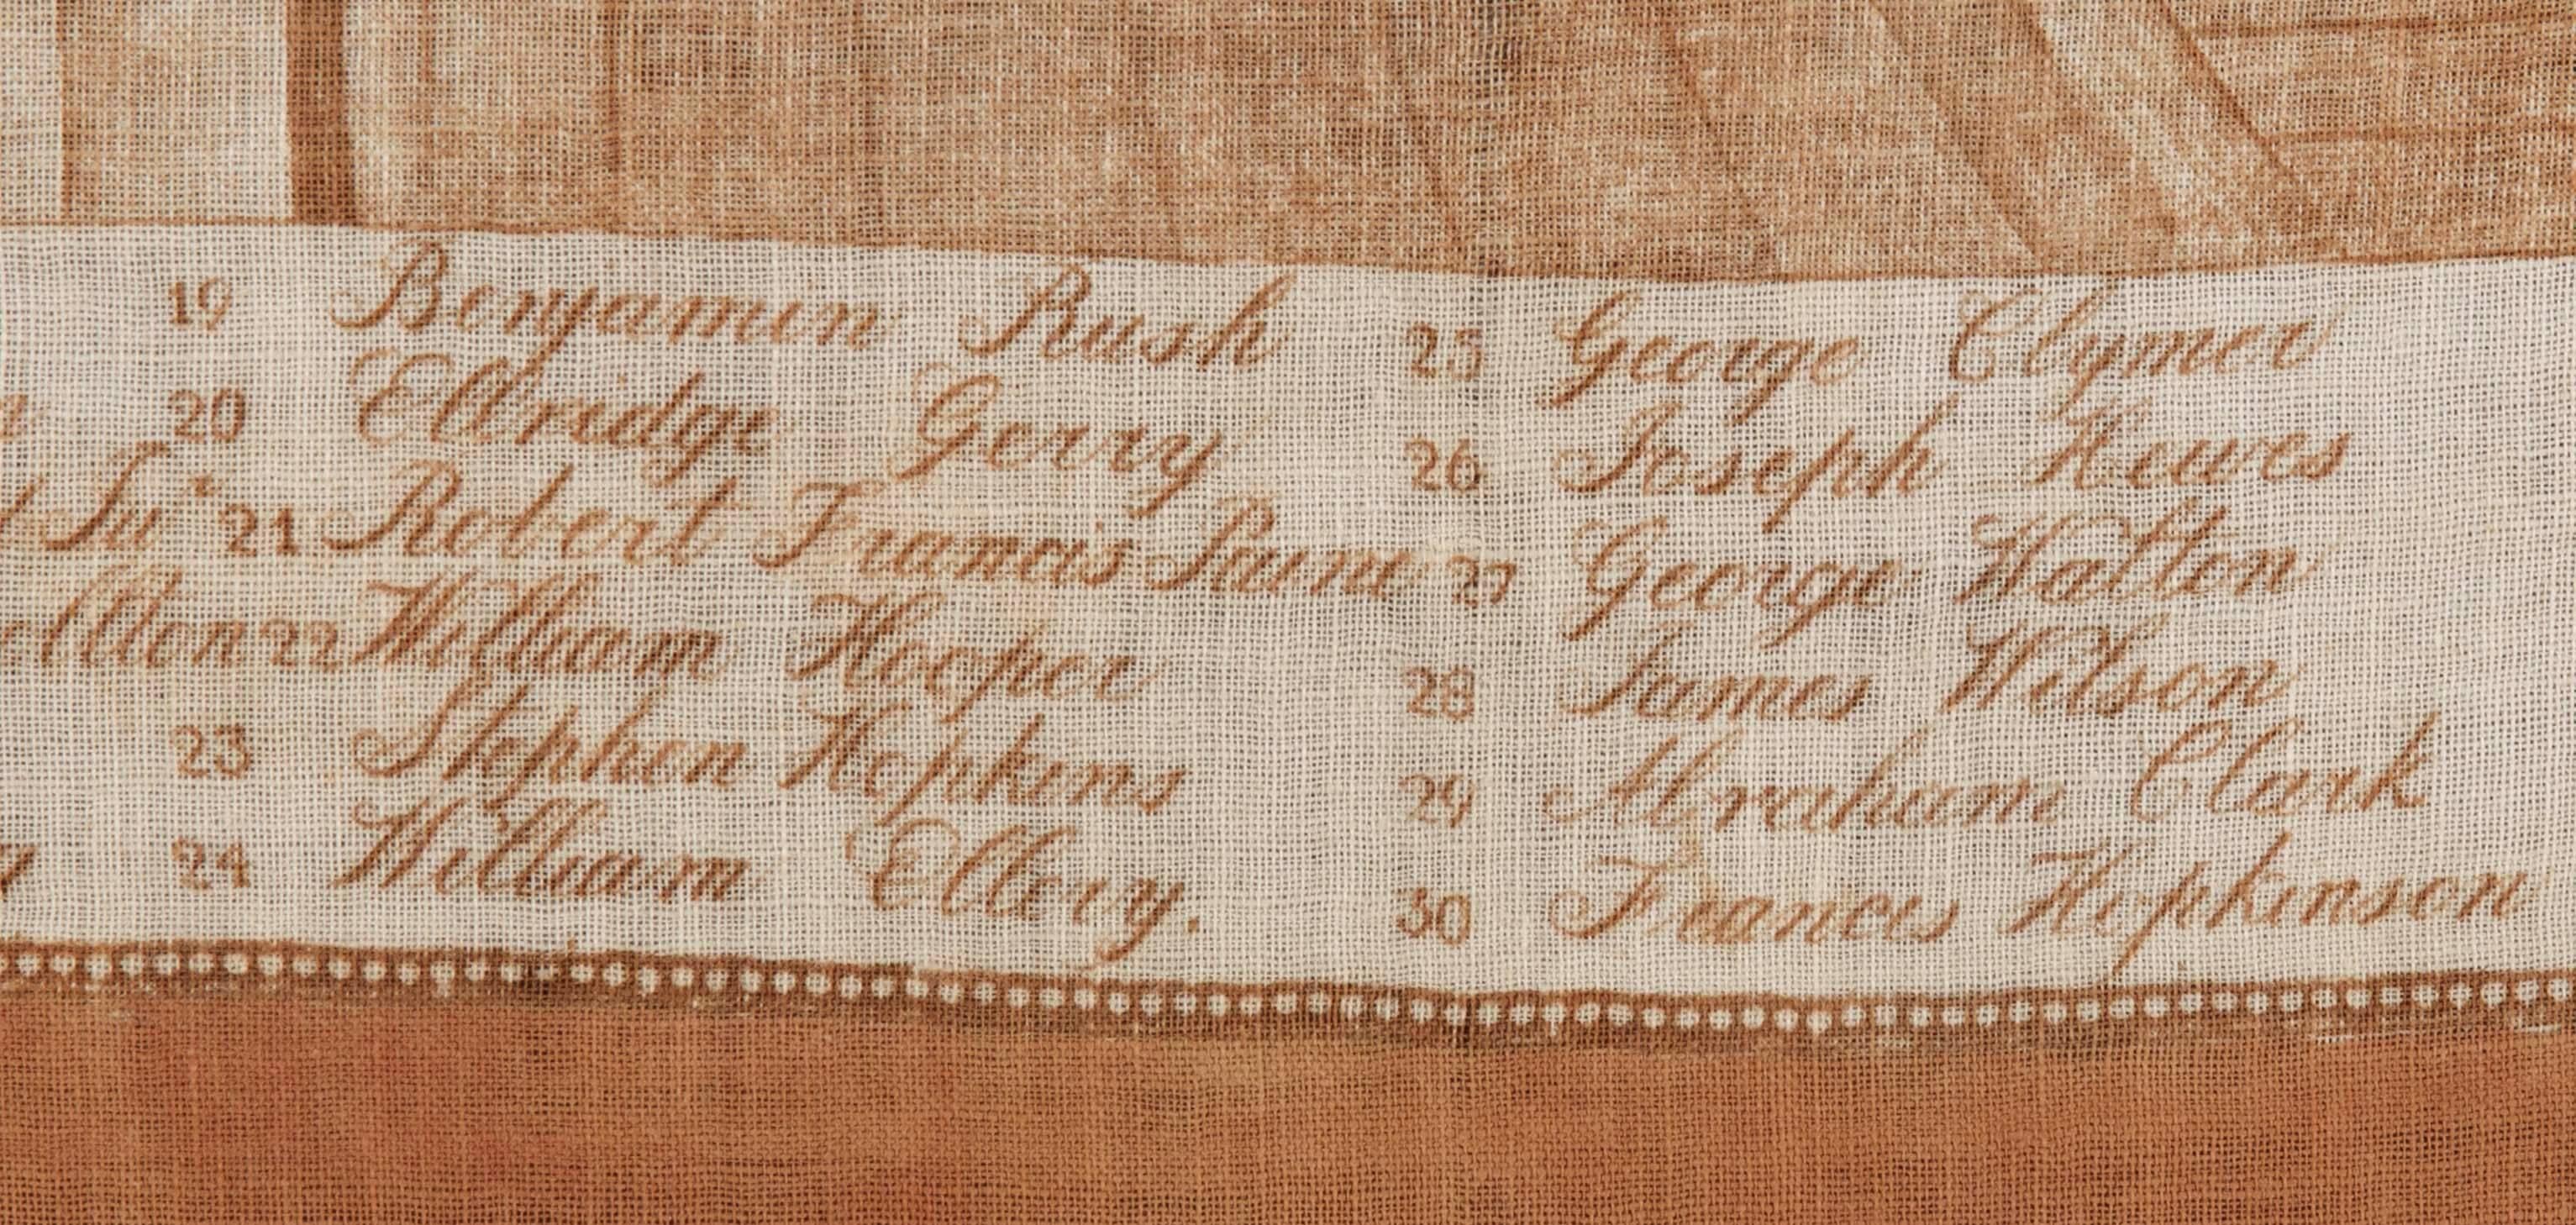 19 Benjamin Rush
20 Ellridge Gerry
21 Robert Francis Paine
22 William Hooper
23 Stephen Hopkins
24 William Ellery.
25 George Clymer
26 Joseph Hewes
27 George Walton
28 James Wilson
29 Abraham Clark
30 Francis Hopkinson